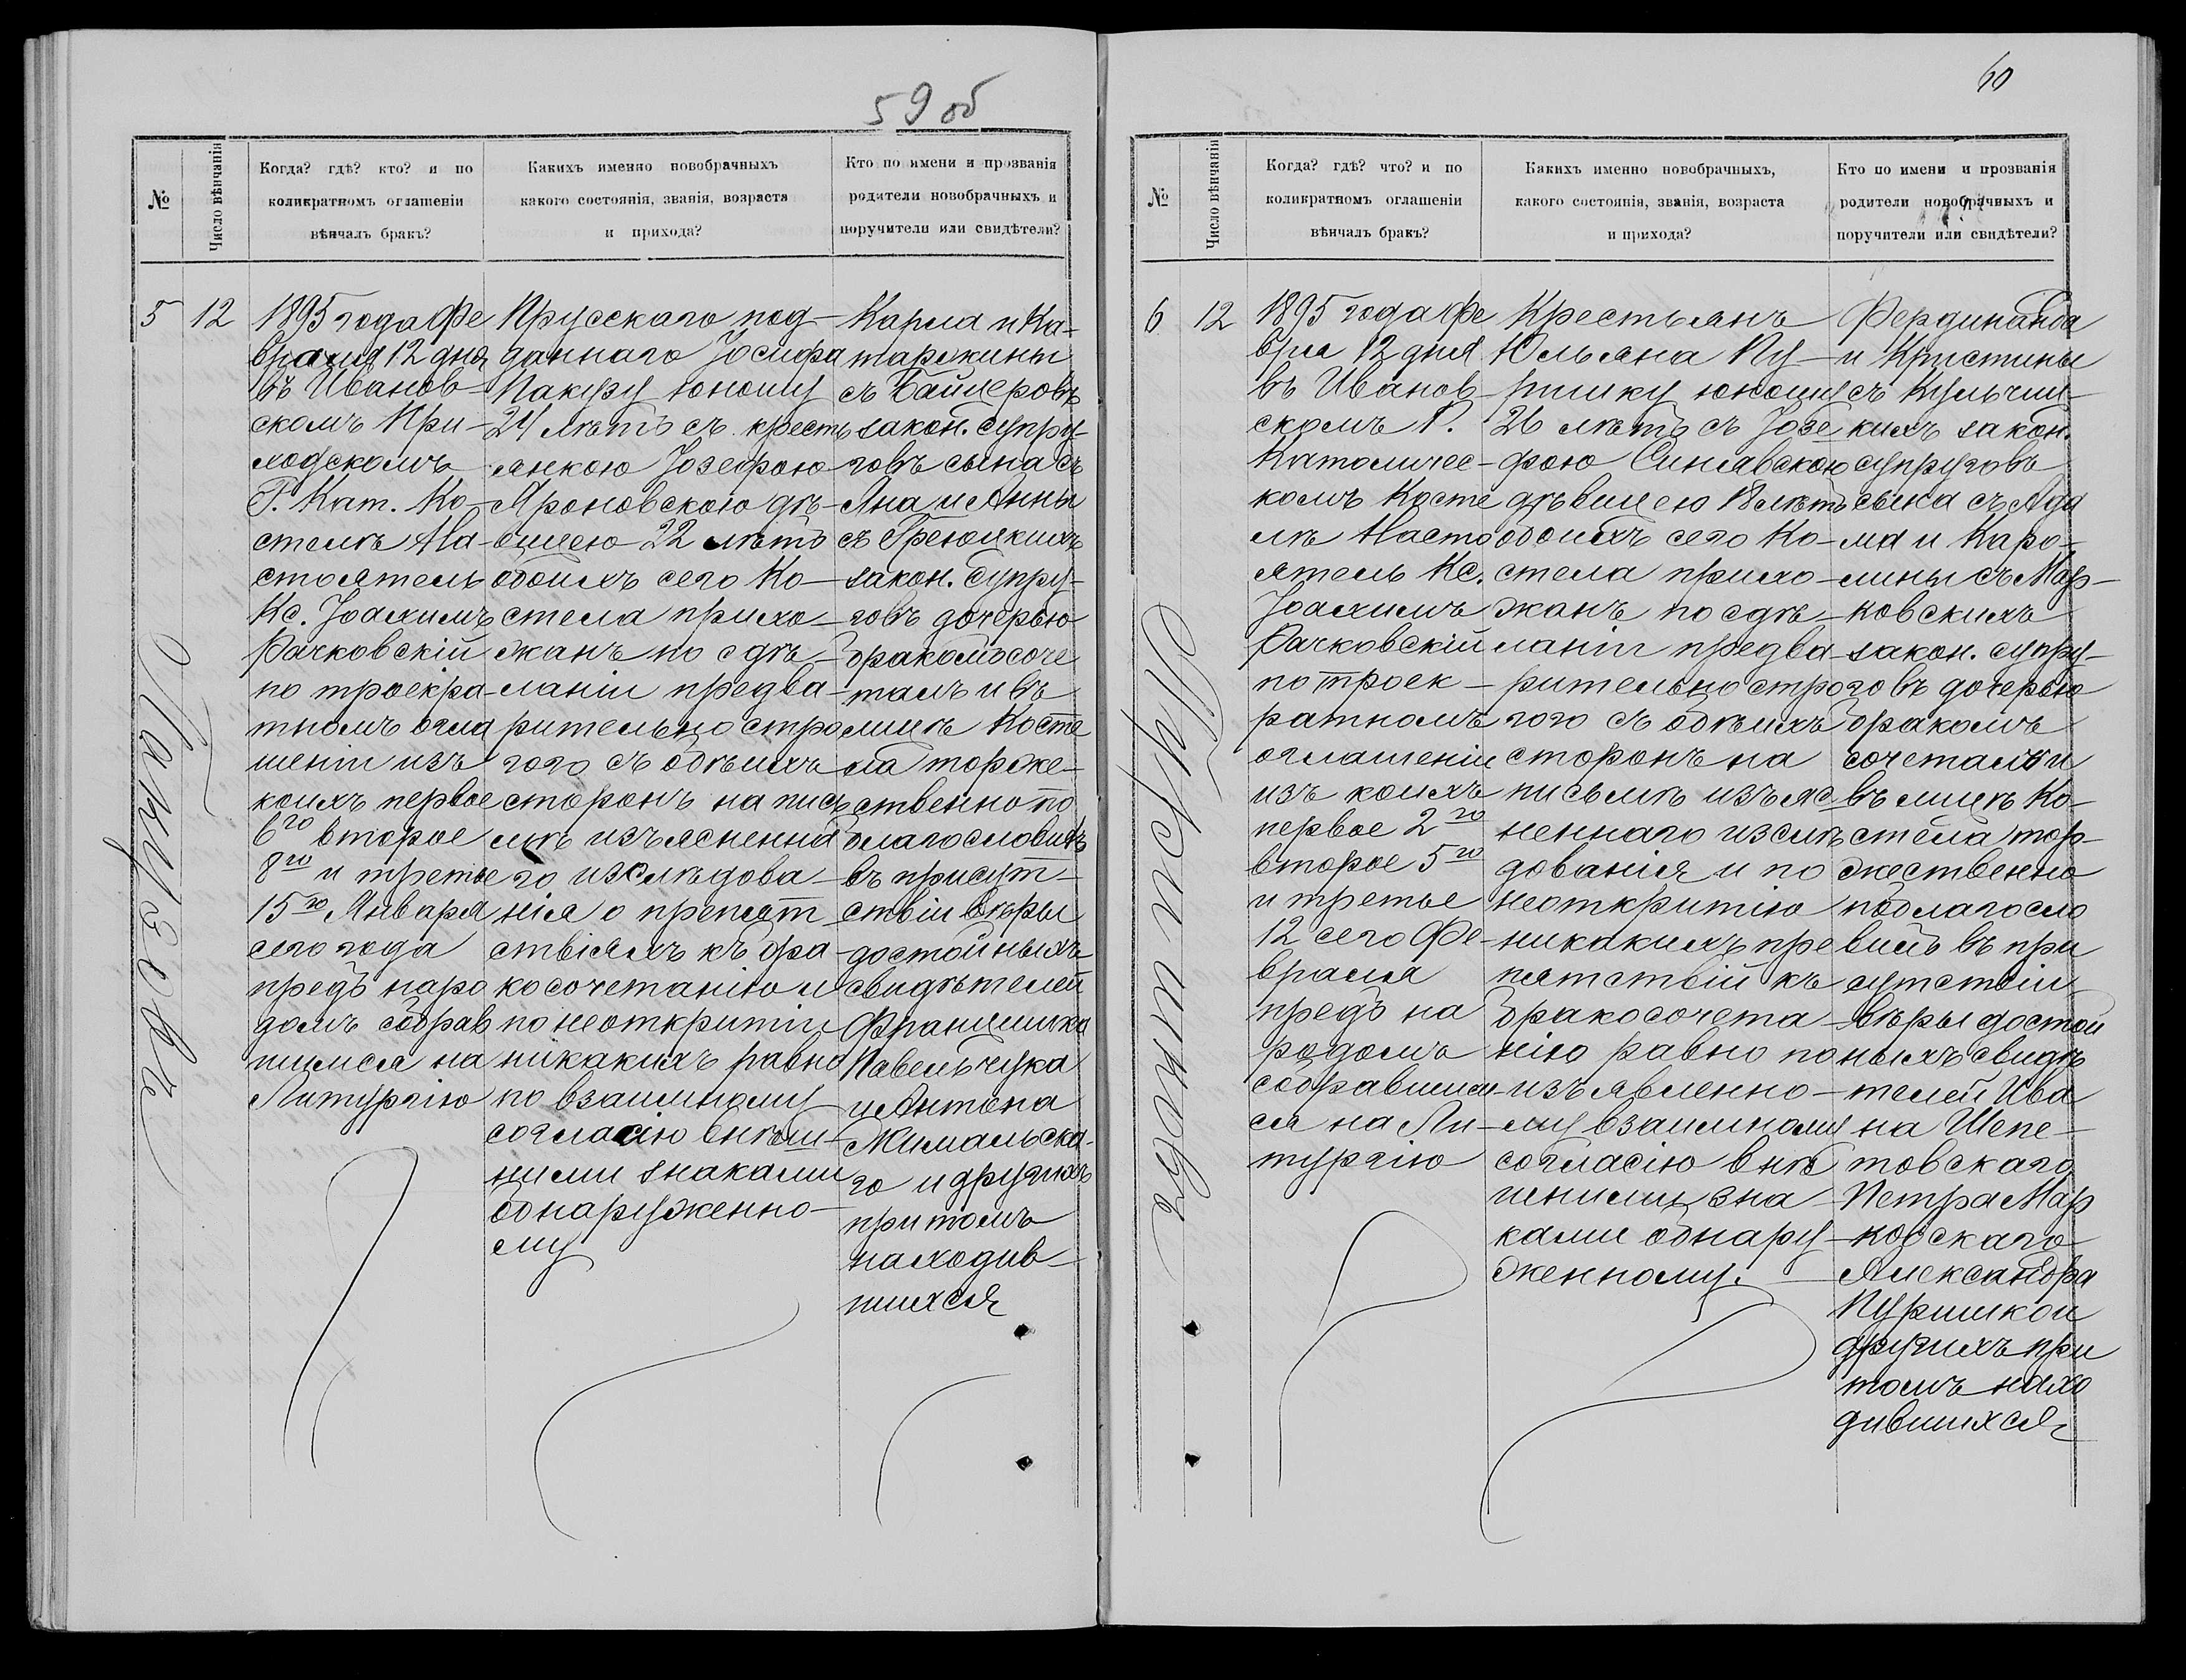 59 об
№
Число вѣнчанія
Когда? гдѣ? кто? и по
коликратномъ оглашеніи
вѣнчалъ бракъ?
Какихъ именно новобрачныхъ
какого состоянія, званія, возраста
и прихода?
Кто по имени и прозванія
родители новобрачныхъ и
поручители или свидѣтели?
5
12
1895 года Фе
враля 12 дня
въ Иванов-
скомъ При-
ходскомъ
Р. Кат. Ко-
стелѣ На-
стоятель
Кс. Іоахимъ
Рачковскій
по троекра-
тномъ огла
шеніи изъ
коихъ первое
6го второе
8го и третье
15го Января
сего года
предъ наро
домъ собрав
шимся на
Литургію
Прусскаго под-
даннаго Іосифа
Пакуру юношу
24 лѣтъ съ кресть
янкою Іозефою
Яроновскою дѣ-
вицею 22 лѣтъ
обоихъ сего Ко-
стела прихо-
жанъ по сдѣ-
ланіи предва-
рительно стро
гого съ обѣихъ
сторонъ на пись
мѣ изъясненна
го изслѣдова-
нія о препят
ствіяхъ къ бра-
косочетанію и
по неоткритію
никакихъ равно
по взаимному
согласію внѣш-
ними знаками
обнаруженно-
му
Карла и Ка-
таржины
съ Баймеровъ
закон. супру-
говъ сына съ
Яна и Анны
съ Греюцкихъ
закон. супру-
говъ дочерью
бракомъ соче
талъ и въ
лицѣ Косте
ла торже-
ственно по
благословилъ
въ присут-
ствіи вѣры
достойныхъ
свидѣтелей
Францишка
Павельчука
и Антона
Жимальска-
го и другихъ
при томъ
находив-
шихся
Пакузовъ
60
№
Число вѣнчанія
Когда? гдѣ? что? и по
коликратномъ оглашеніи
вѣнчалъ бракъ?
Какихъ именно новобрачныхъ,
какого состоянія, званія, возраста
и прихода?
Кто по имени и прозванія
родители новобрачныхъ и
поручители или свидѣтели?
6
12
1895 года Фе
врля 12 дня
въ Иванов-
скомъ Р.
Католичес-
комъ Косте
лѣ Насто
ятель Кс.
Іоахимъ
Рачковскій
по троек-
ратномъ
оглашеніи
изъ коихъ
первое 2го
второе 5го
и третье
12 сего Фе-
враля
предъ на
родомъ
собравшим
ся на Ли-
тургію
Крестьянъ
Юльяна Пу-
ришку юношу
26 лѣтъ съ Іозе
фою Синявскою
дѣвицею 18 лѣтъ
обоихъ сего Ко-
стела прихо-
жанъ по сдѣ-
ланіи предва-
рительно стро
гого съ обѣихъ
сторонъ на
письмѣ изъяс
неннаго изслѣ
дованія и по
неоткритію
никакихъ пре
пятствій къ
бракосочета-
нію равно по
изъявленно-
му взаимному
согласію внѣ
шними зна-
ками обнару-
женному.
Фердинанда
и Кристины
съ Кульчиц-
кихъ закон.
супруговъ
сына съ Ада
ма и Каро-
лины съ Мар-
ковскихъ
закон. супру-
говъ дочерью
бракомъ
сочеталъ и
въ лицѣ Ко-
стела тор-
жественно
поблагосло
вилъ въ при
сутствіи
вѣры достой
ныхъ свидѣ
телей Ива
на Шепе-
товскаго
Петра Мар
ковскаго
Александра
Пуришкои
другихъ при
томъ нахо
дившихся
Пуришковъ